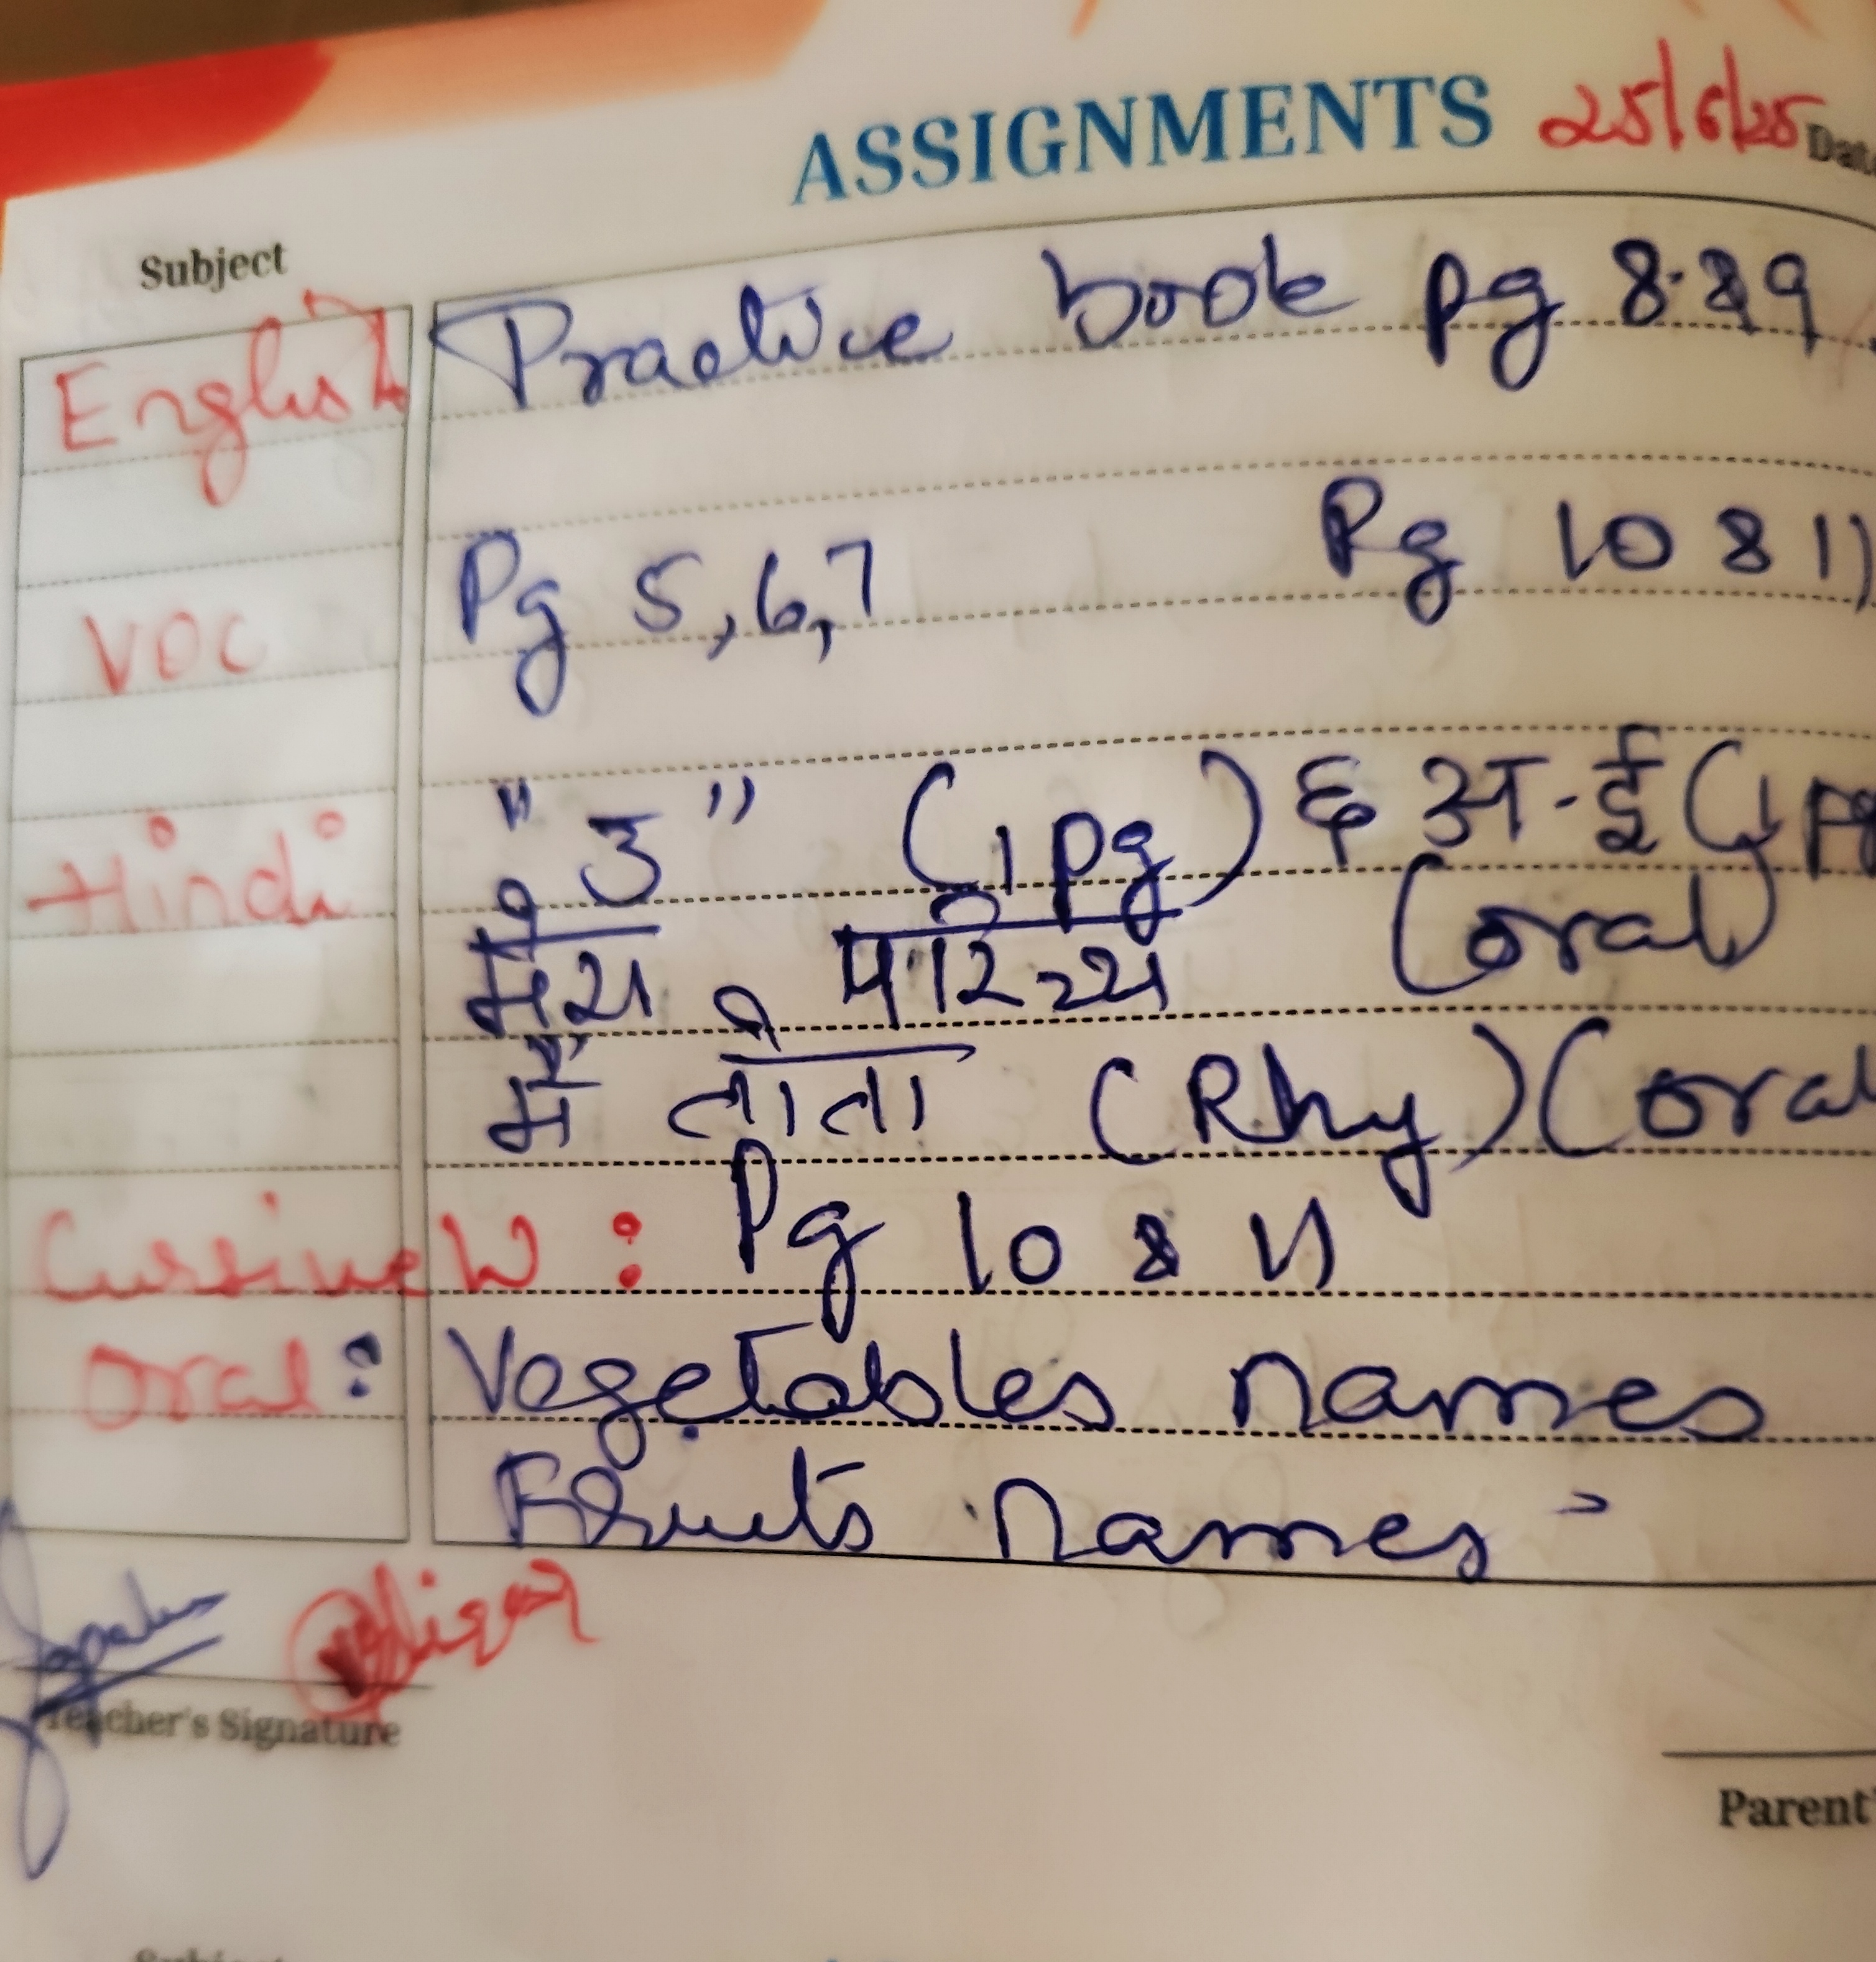 ASSIGNMENTS 25/6/25 Date
Subject
English Practice book pg 8 & 9
VOC Pg 5,6,7 Pg 10 & 11
Hindi "उ" (1 pg) & अ-ई (1 pg
मेरा परिचय (oral)
मैं तोता (Rhy) (oral
Cursive W : Pg 10 & 11
Oral : Vegetables names
Fruits names
Teacher's Signature
Parent'